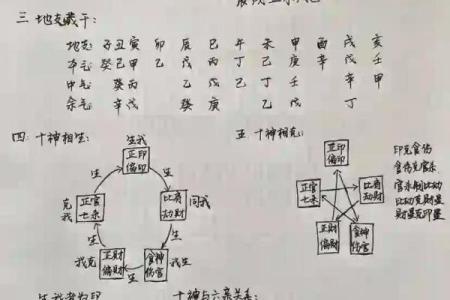 三.地支藏干:
地支: 子丑寅 卯 辰 巳 午 未 申 酉 戌 亥
本气: 癸己甲 乙 戊 丙 丁 己 庚 辛 戊 壬
中气: 癸丙 乙 戊 己 丁 壬 辛 甲
余气: 辛戊 癸 庚 乙 戊 丁
四. 十神相生:
生我
正印
偏印
生
生
克我
正官
七杀
比肩
劫财
同我
生
生
我克
正财
偏财
食神
伤官
我生
生
五. 十神相克:
正印
偏印
正官
七杀
比肩
劫财
正财
偏财
食神
伤官
印克食伤
食伤克官杀
官杀制比劫
比劫克财星
财星克印星
生我者为印
十神与六亲关系: